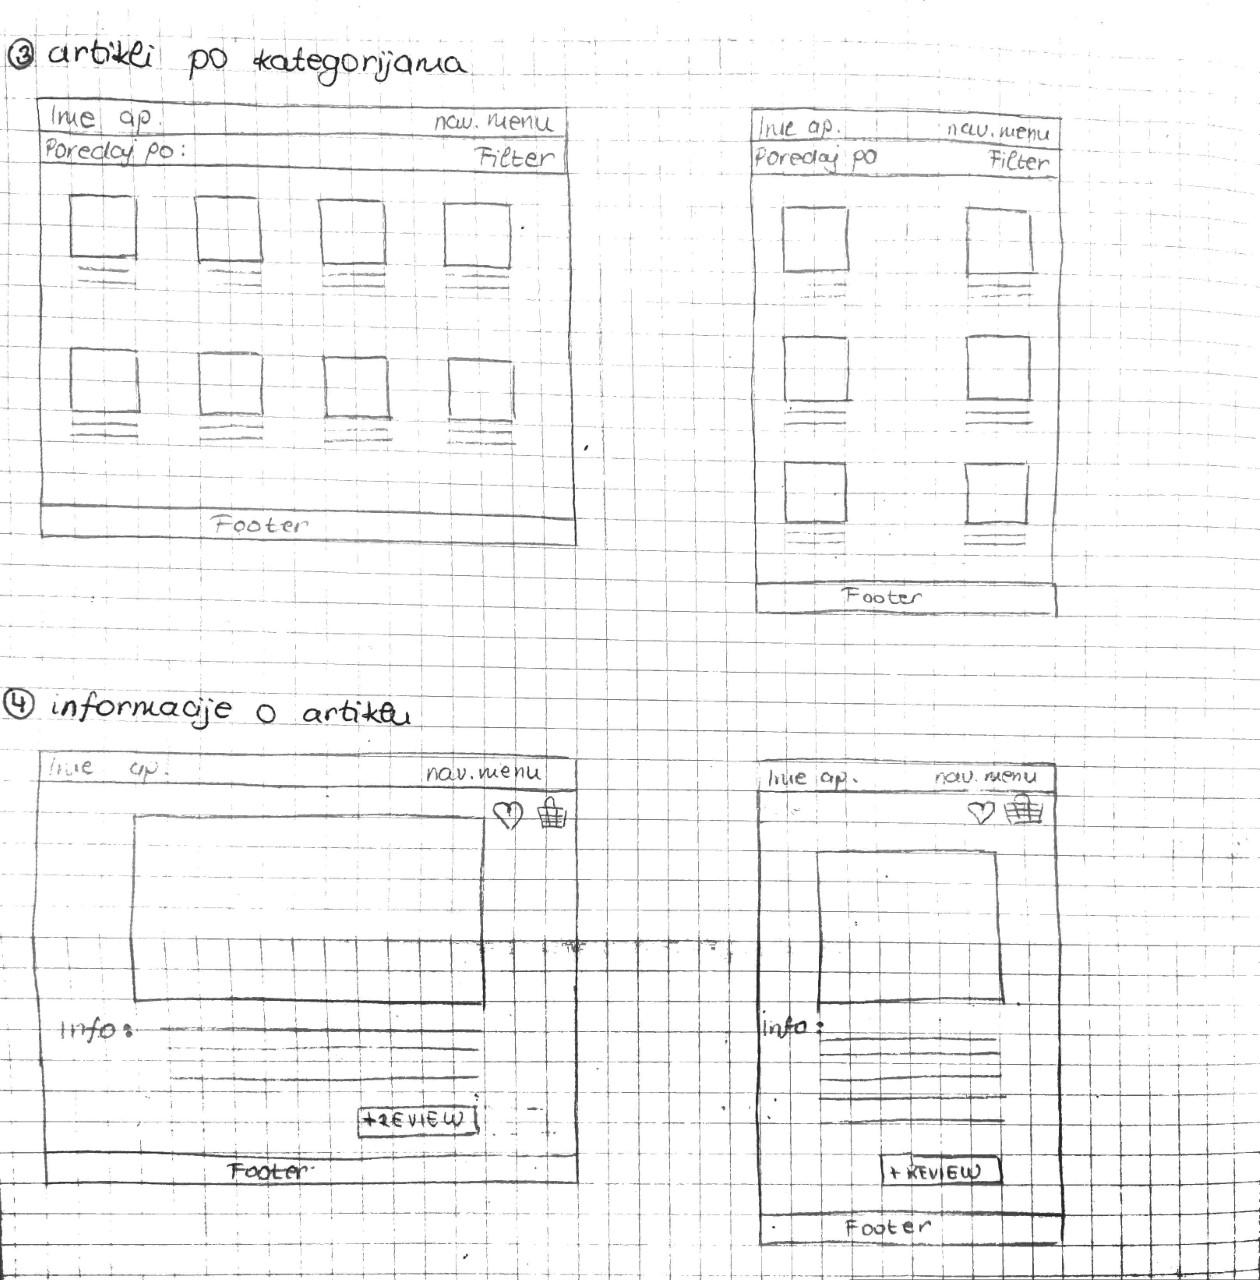 ③ artikli po kategorijama
Ime ap. nav. menu
Poredaj po: Filter
Footer
Ime ap. nav. menu
Poredaj po Filter
Footer
④ informacije o artiklu
Ime ap. nav. menu
info:
+REVIEW
Footer
Ime ap. nav. menu
info:
+ REVIEW
Footer